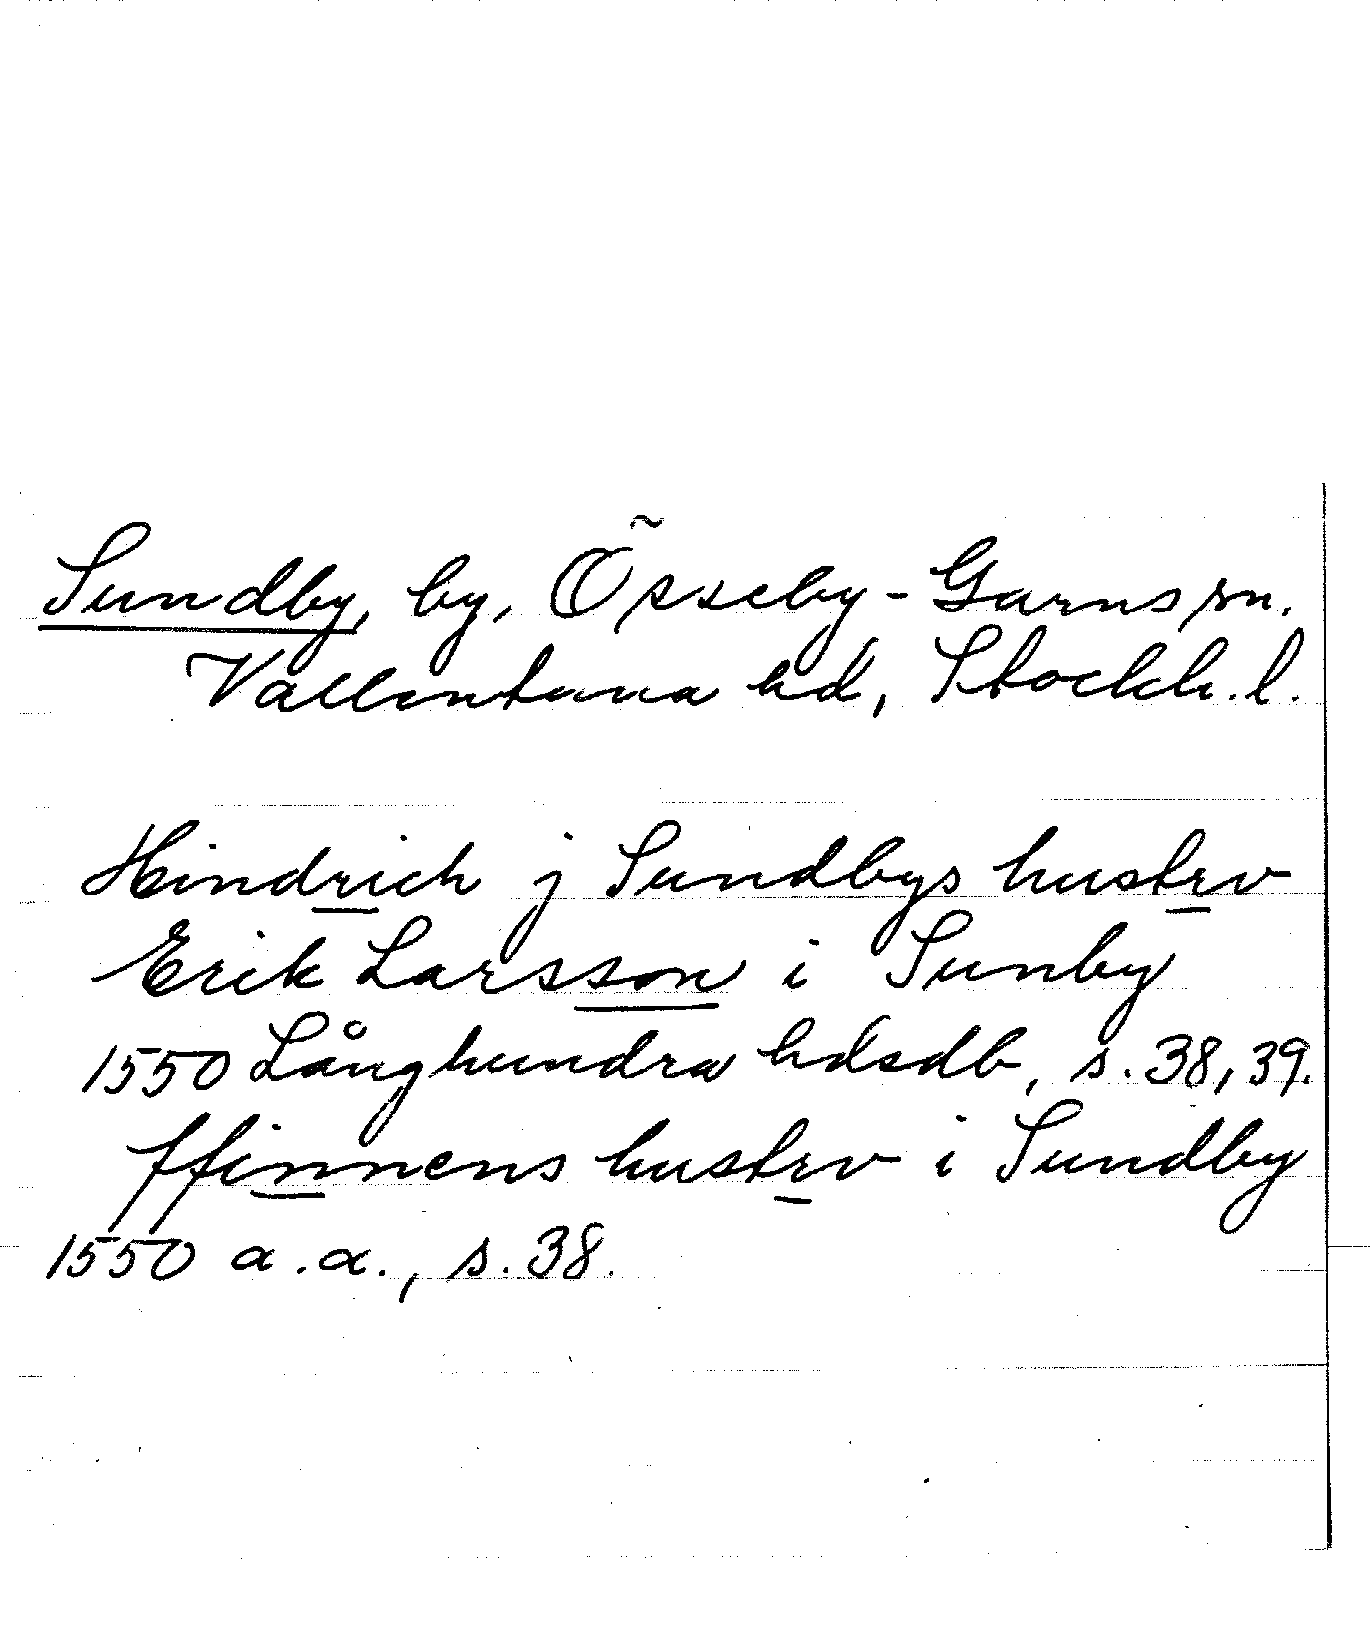 Sundby, by, Össeby-Garns sn.
Vallentuna hd, Stockh. l.
Hindrich j Sundbys hustrv
Erik Larsson i Sunby
1550 Långhundra hdsdb, s. 38, 39.
ffinnens hustrv i Sundby
1550 a.a., s. 38.